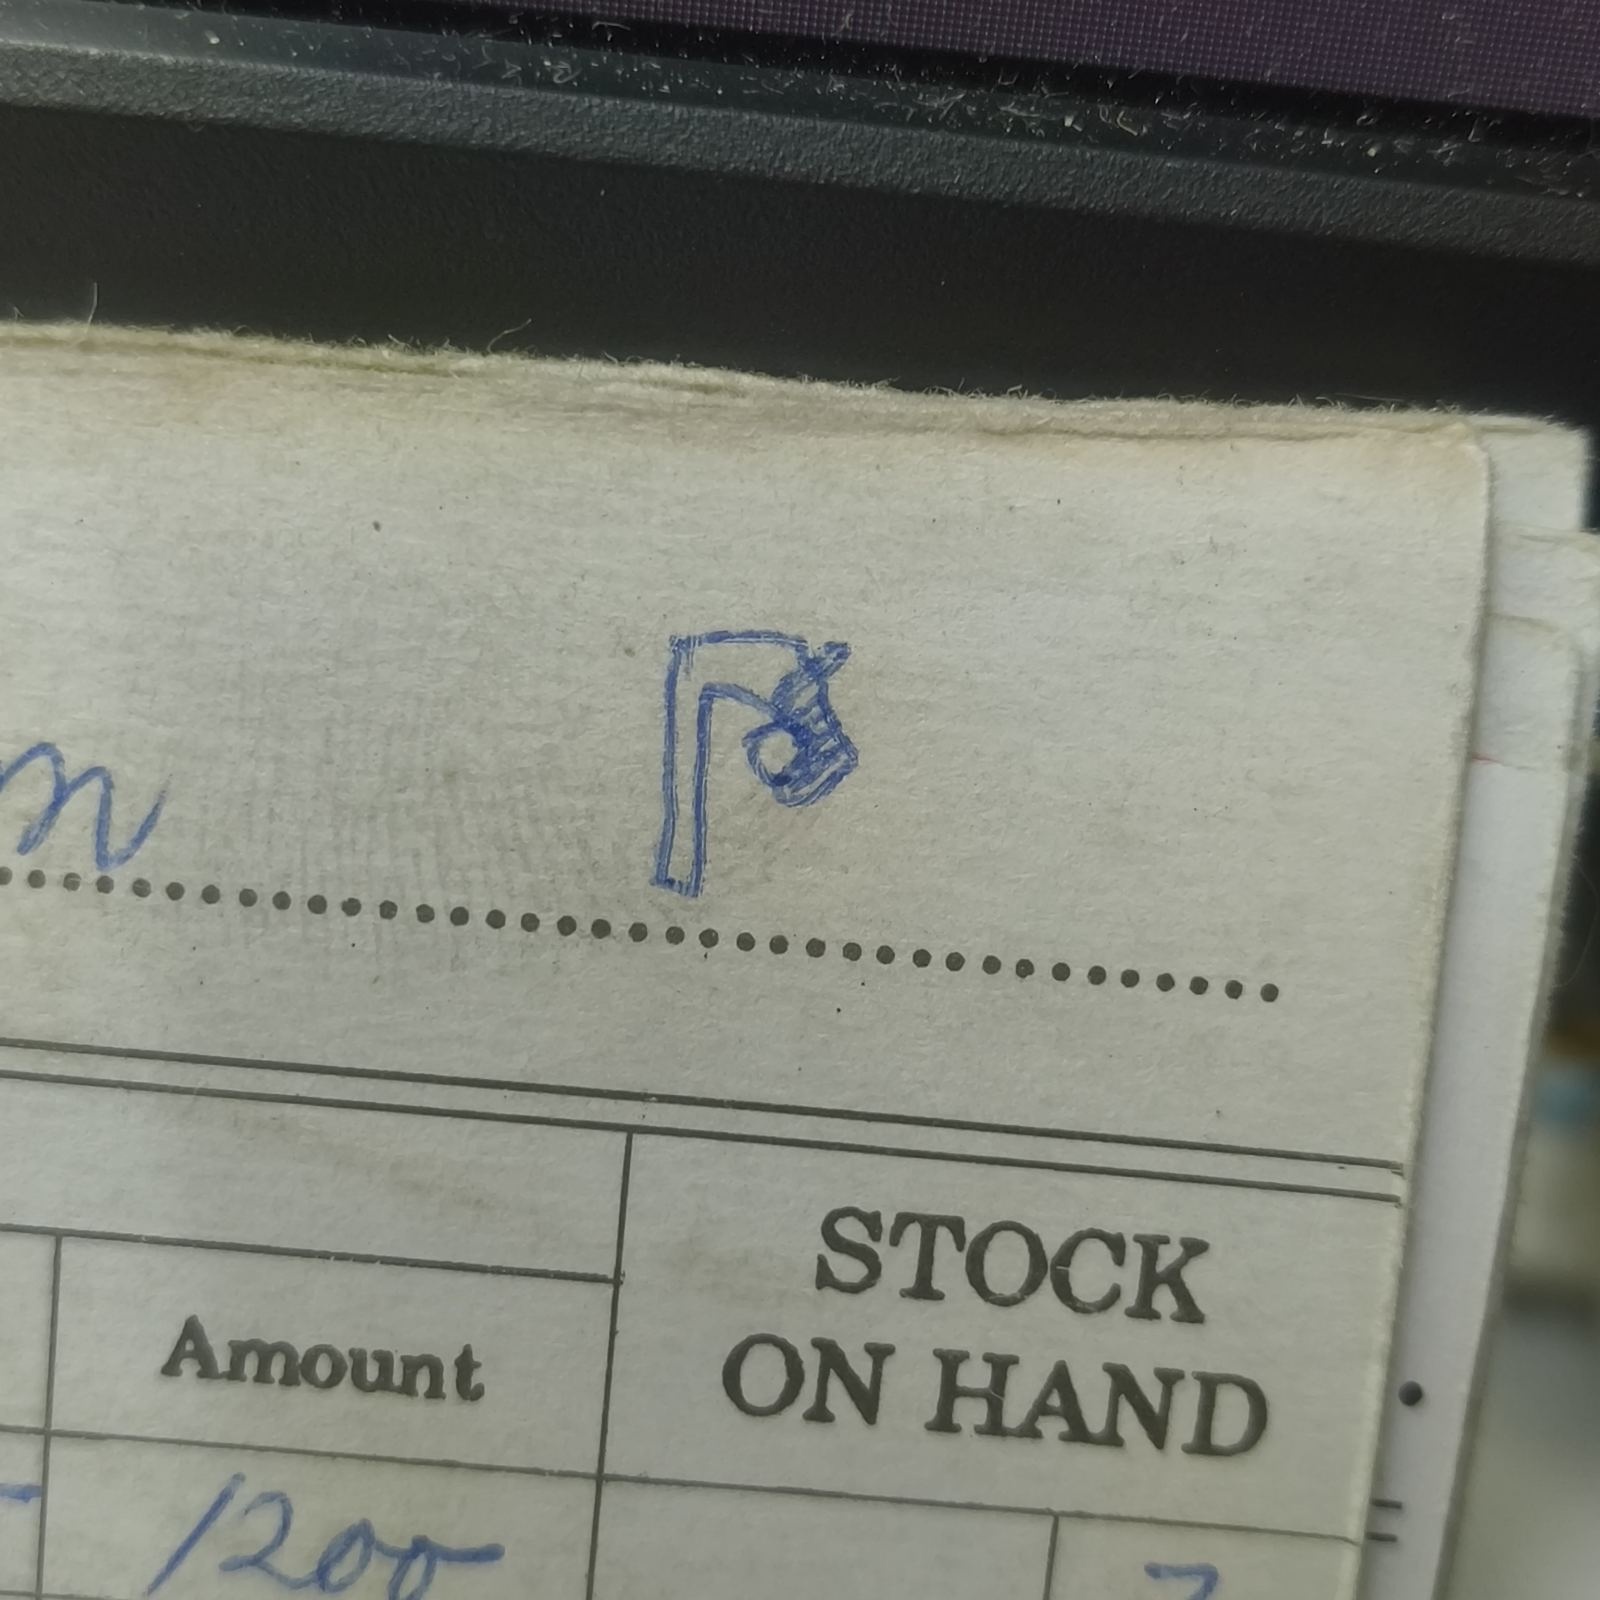 Amount
STOCK
ON HAND
1200